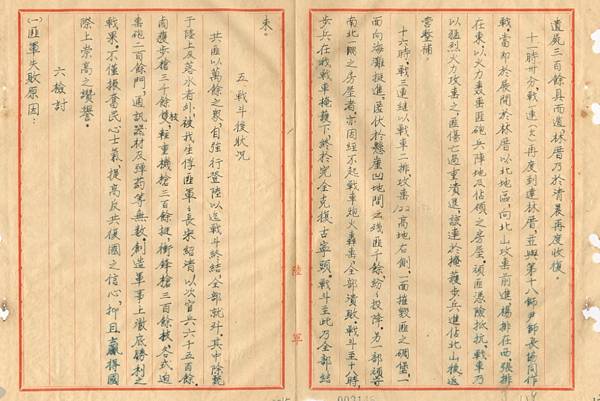 遺屍三百餘具而遁，林厝乃於清晨再度收復。
十一時十分，戰一連(欠)再度到達林厝，並與第十八師尹師長協同作
戰，當即於展開於林厝以北地區，向北山攻擊前進，楊排在西，張排
在東，以火力奏擊匪砲兵陣地及佔領之房屋，頑匪憑險抵抗，戰車乃
以猛烈火力攻擊之，匪傷亡過重潰退，該連於掩護步兵進佔北山後返
營整補。
十六時，戰三連繼以戰車二排攻擊132高地右側，一面摧毀匪之碉堡，一
面向海灘挺進，匿伏於懸崖凹地間之殘匪千餘，紛紛投降，另一部頑寄
南北一閣之房屋者，亦因經不起戰車炮火轟擊，全部潰敗，戰斗至十八時，
步兵在我戰車掩護下，終於完全克復古寧頭，戰斗至此乃全部結
束。
五 戰斗後狀況
共匪以萬餘之眾，自強行登陸以迄戰斗終結，全部就殲，其中除斃
于陸上及落水者外，被我生俘匪軍：長宋紹清以次官兵六千五百餘，
南獲步槍三千餘枝，輕重機槍三百餘挺，衝鋒槍三百餘枝，各式迫
擊砲二百餘門，通訊器材及彈药等無數，創造軍事上徹底勝利之
戰果，不僅振奮民心士氣，提高反共復國之信心，抑且贏得國
際上崇高之讚譽。
六 檢討
(一)匪軍失敗原因：
陸
軍